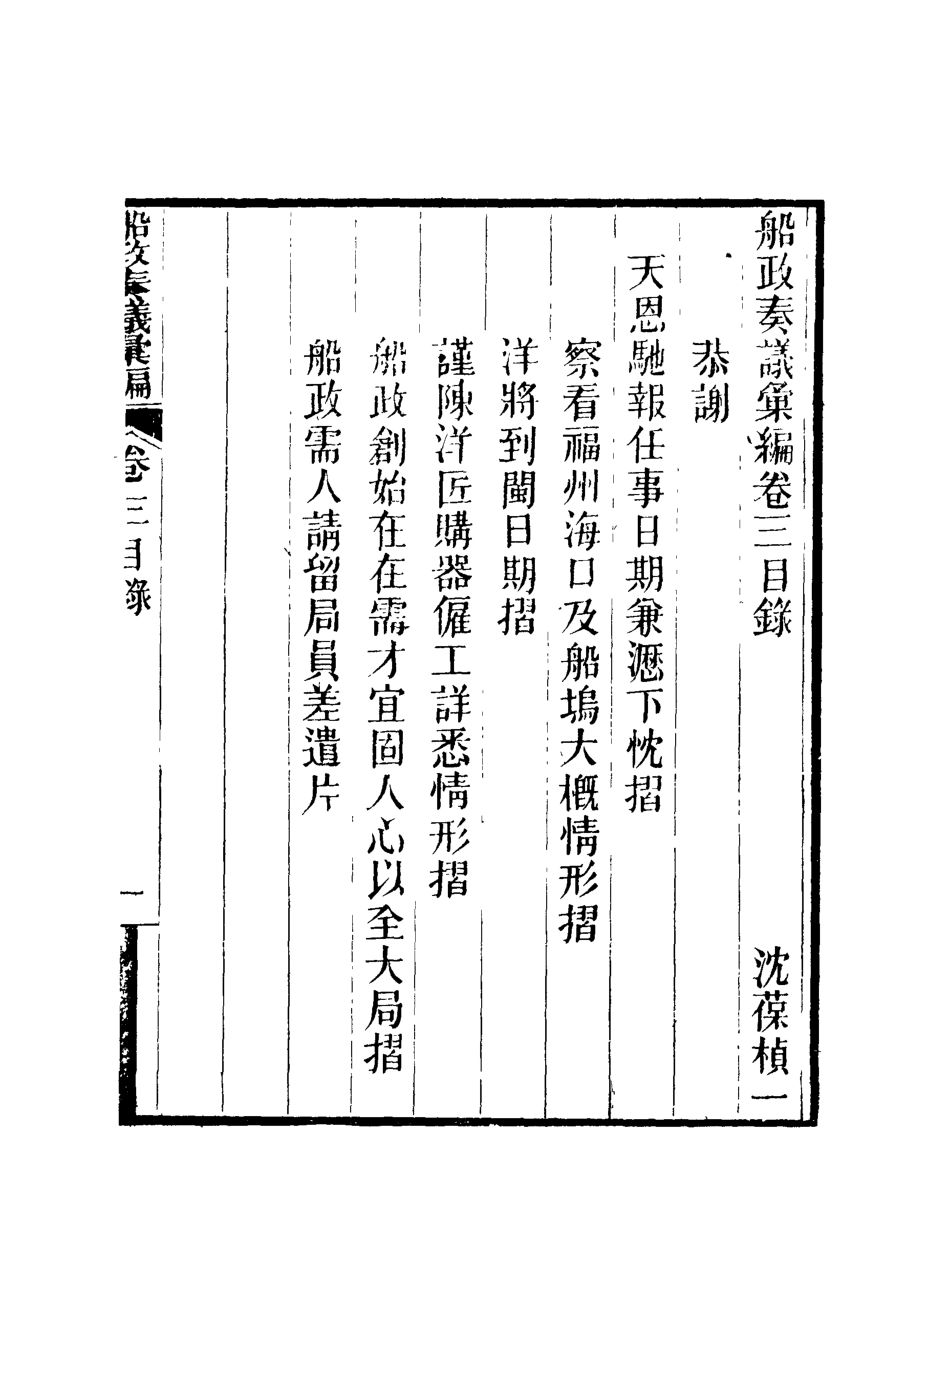 船政奏議彙編卷三目錄　沈葆楨一
恭謝
天恩馳報任事日期兼瀝下忱摺
察看福州海口及船塢大概情形摺
洋將到閩日期摺
謹陳洋匠購器僱工詳悉情形摺
船政創始在在需才宜固人心以全大局摺
船政需人請留局員差遣片
船政奏議彙編　卷三目錄　一